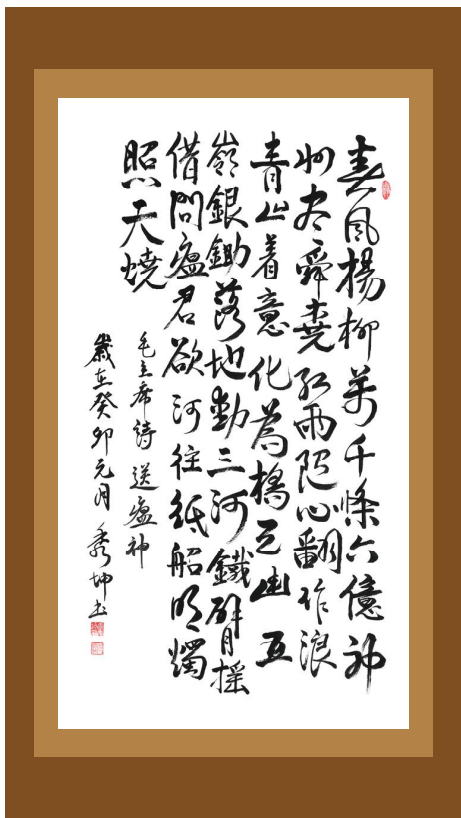 春風楊柳萬千條六億神
州尽舜堯紅雨随心翻作浪
青山着意化為橋天連五
嶺銀鋤落地動三河鐵臂摇
借問瘟君欲河往紙船明燭
照天燒
毛主席詩送瘟神
歲在癸卯元月秀坤書